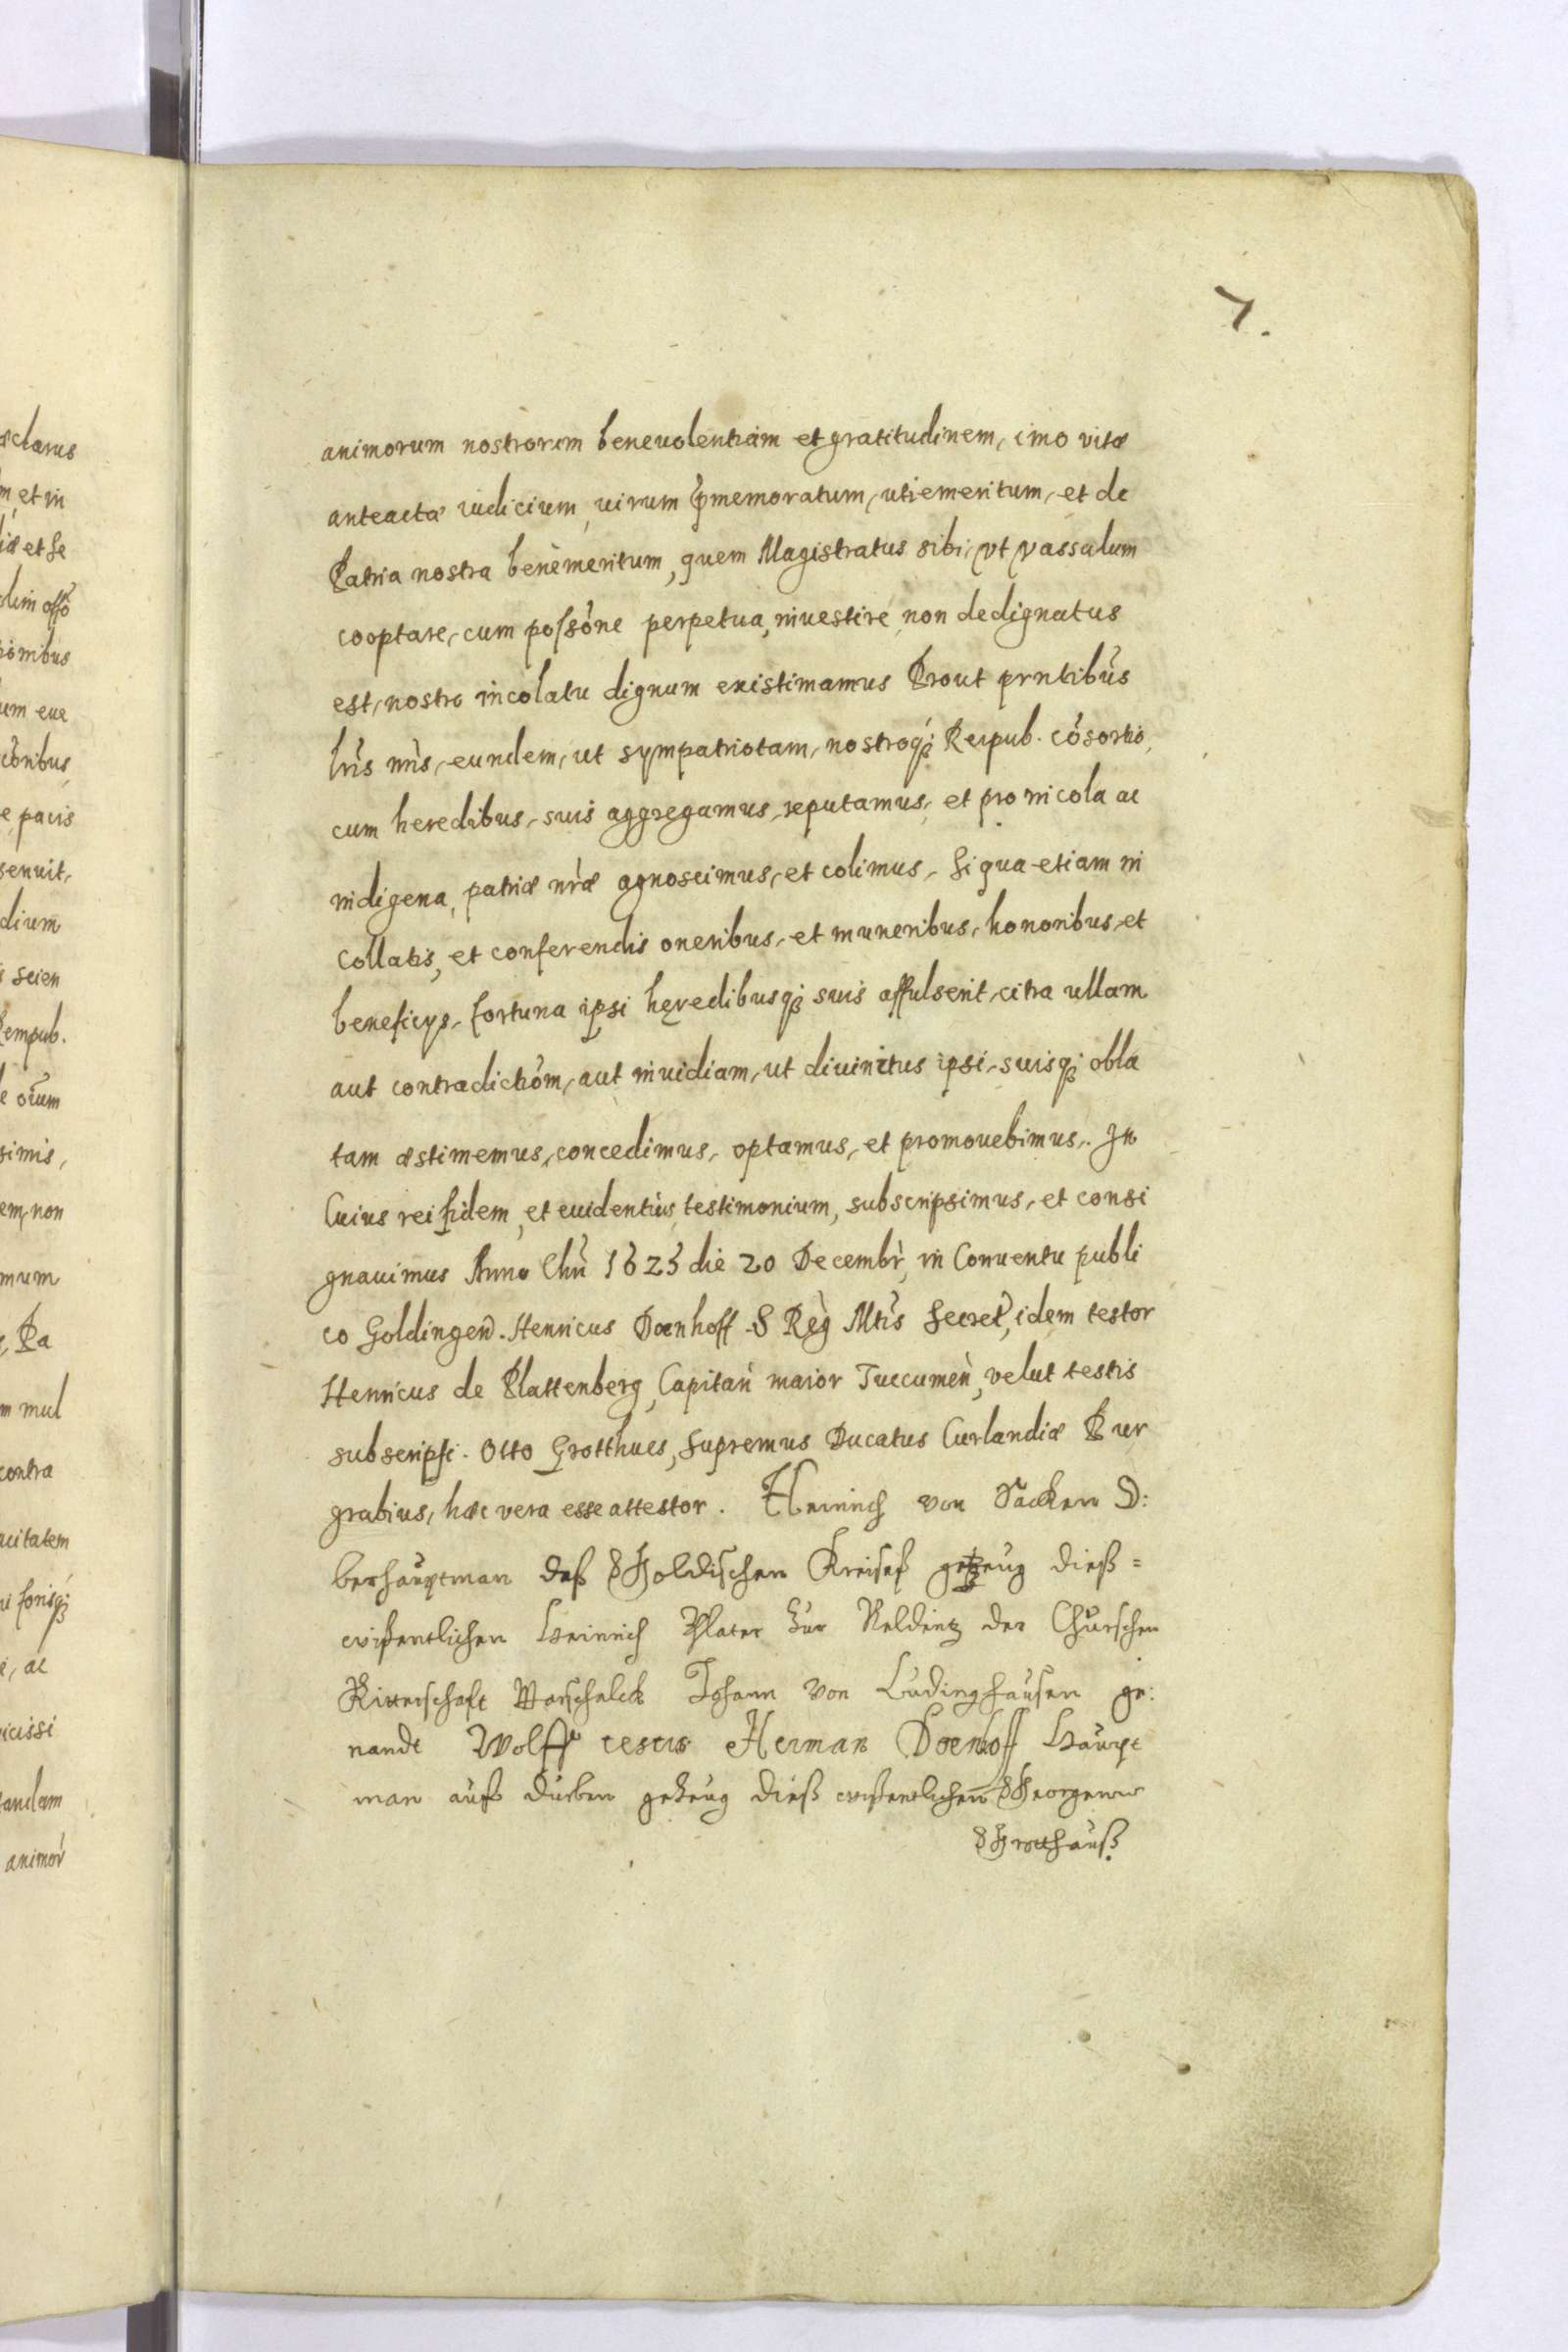 7.
animorum nostrorum beneuolentiam et gratitudinem, imo vitæ
anteactæ iudicium, uirum p̃memoratum, uti emeritum, et de
Patria nostra benemeritum, quem Magistratus sibi, vt vassalum
cooptare, cum possõne perpetua, inuestire non dedignatus
est, nostro incolatu dignum existimamus Prout prntibus
lris nris, eundem, ut sympatriotam, nostroq; Reipub. cõsortio,
cum heredibus, suis aggregamus, reputamus, et pro incola ac
indigena, patriæ nræ agnoscimus, et colimus, Si qua etiam in
Collatis, et conferendis oneribus, et muneribus, honoribus, et
beneficys, fortuna ipsi hęredibusq; suis affulserit, citra ullam
aut contradictiõm, aut inuidiam, ut diuinitus ipsi, suisq; obla
tam æstimemus, concedimus, optamus, et promouebimus. In
Cuius rei fidem, et euidentius testimonium, subscripsimus, et consi
gnauimus Anno Chri 1623 die 20 Decembr, in Conuentu publi
co Goldingen. Henricus Doenhoff S Reg Mtis Secret, idem testor
Henricus de Plattenberg, Capitan maior Tuccumen, velut testis
subscripsi. Otto Grotthues, Supremus Ducatus Curlandiæ Bur
grabius, hæc vera esse attestor. Heinrich von Sacken O:
berhauptman deß Goldischen Kreiseß gezeug dieß=
wißentlichen Heinrich Plater zur Neldentz der Churschen
Ritterschaft Marschalck Johann von Lüdinghausen ge:
nandt Wolff testis Herman Doenhoff Haupt
man auß Durben gezeug dieß wißentlichen Georgenn
Grotthauß.
sclarus
m, et in
iæ et se
um eue
e pacis
senuit,
dium
scien
Rempub.
simis,
em, non
mum
, Pa
m mul
contra
acitatem
i, ac
icissi
andam
animor